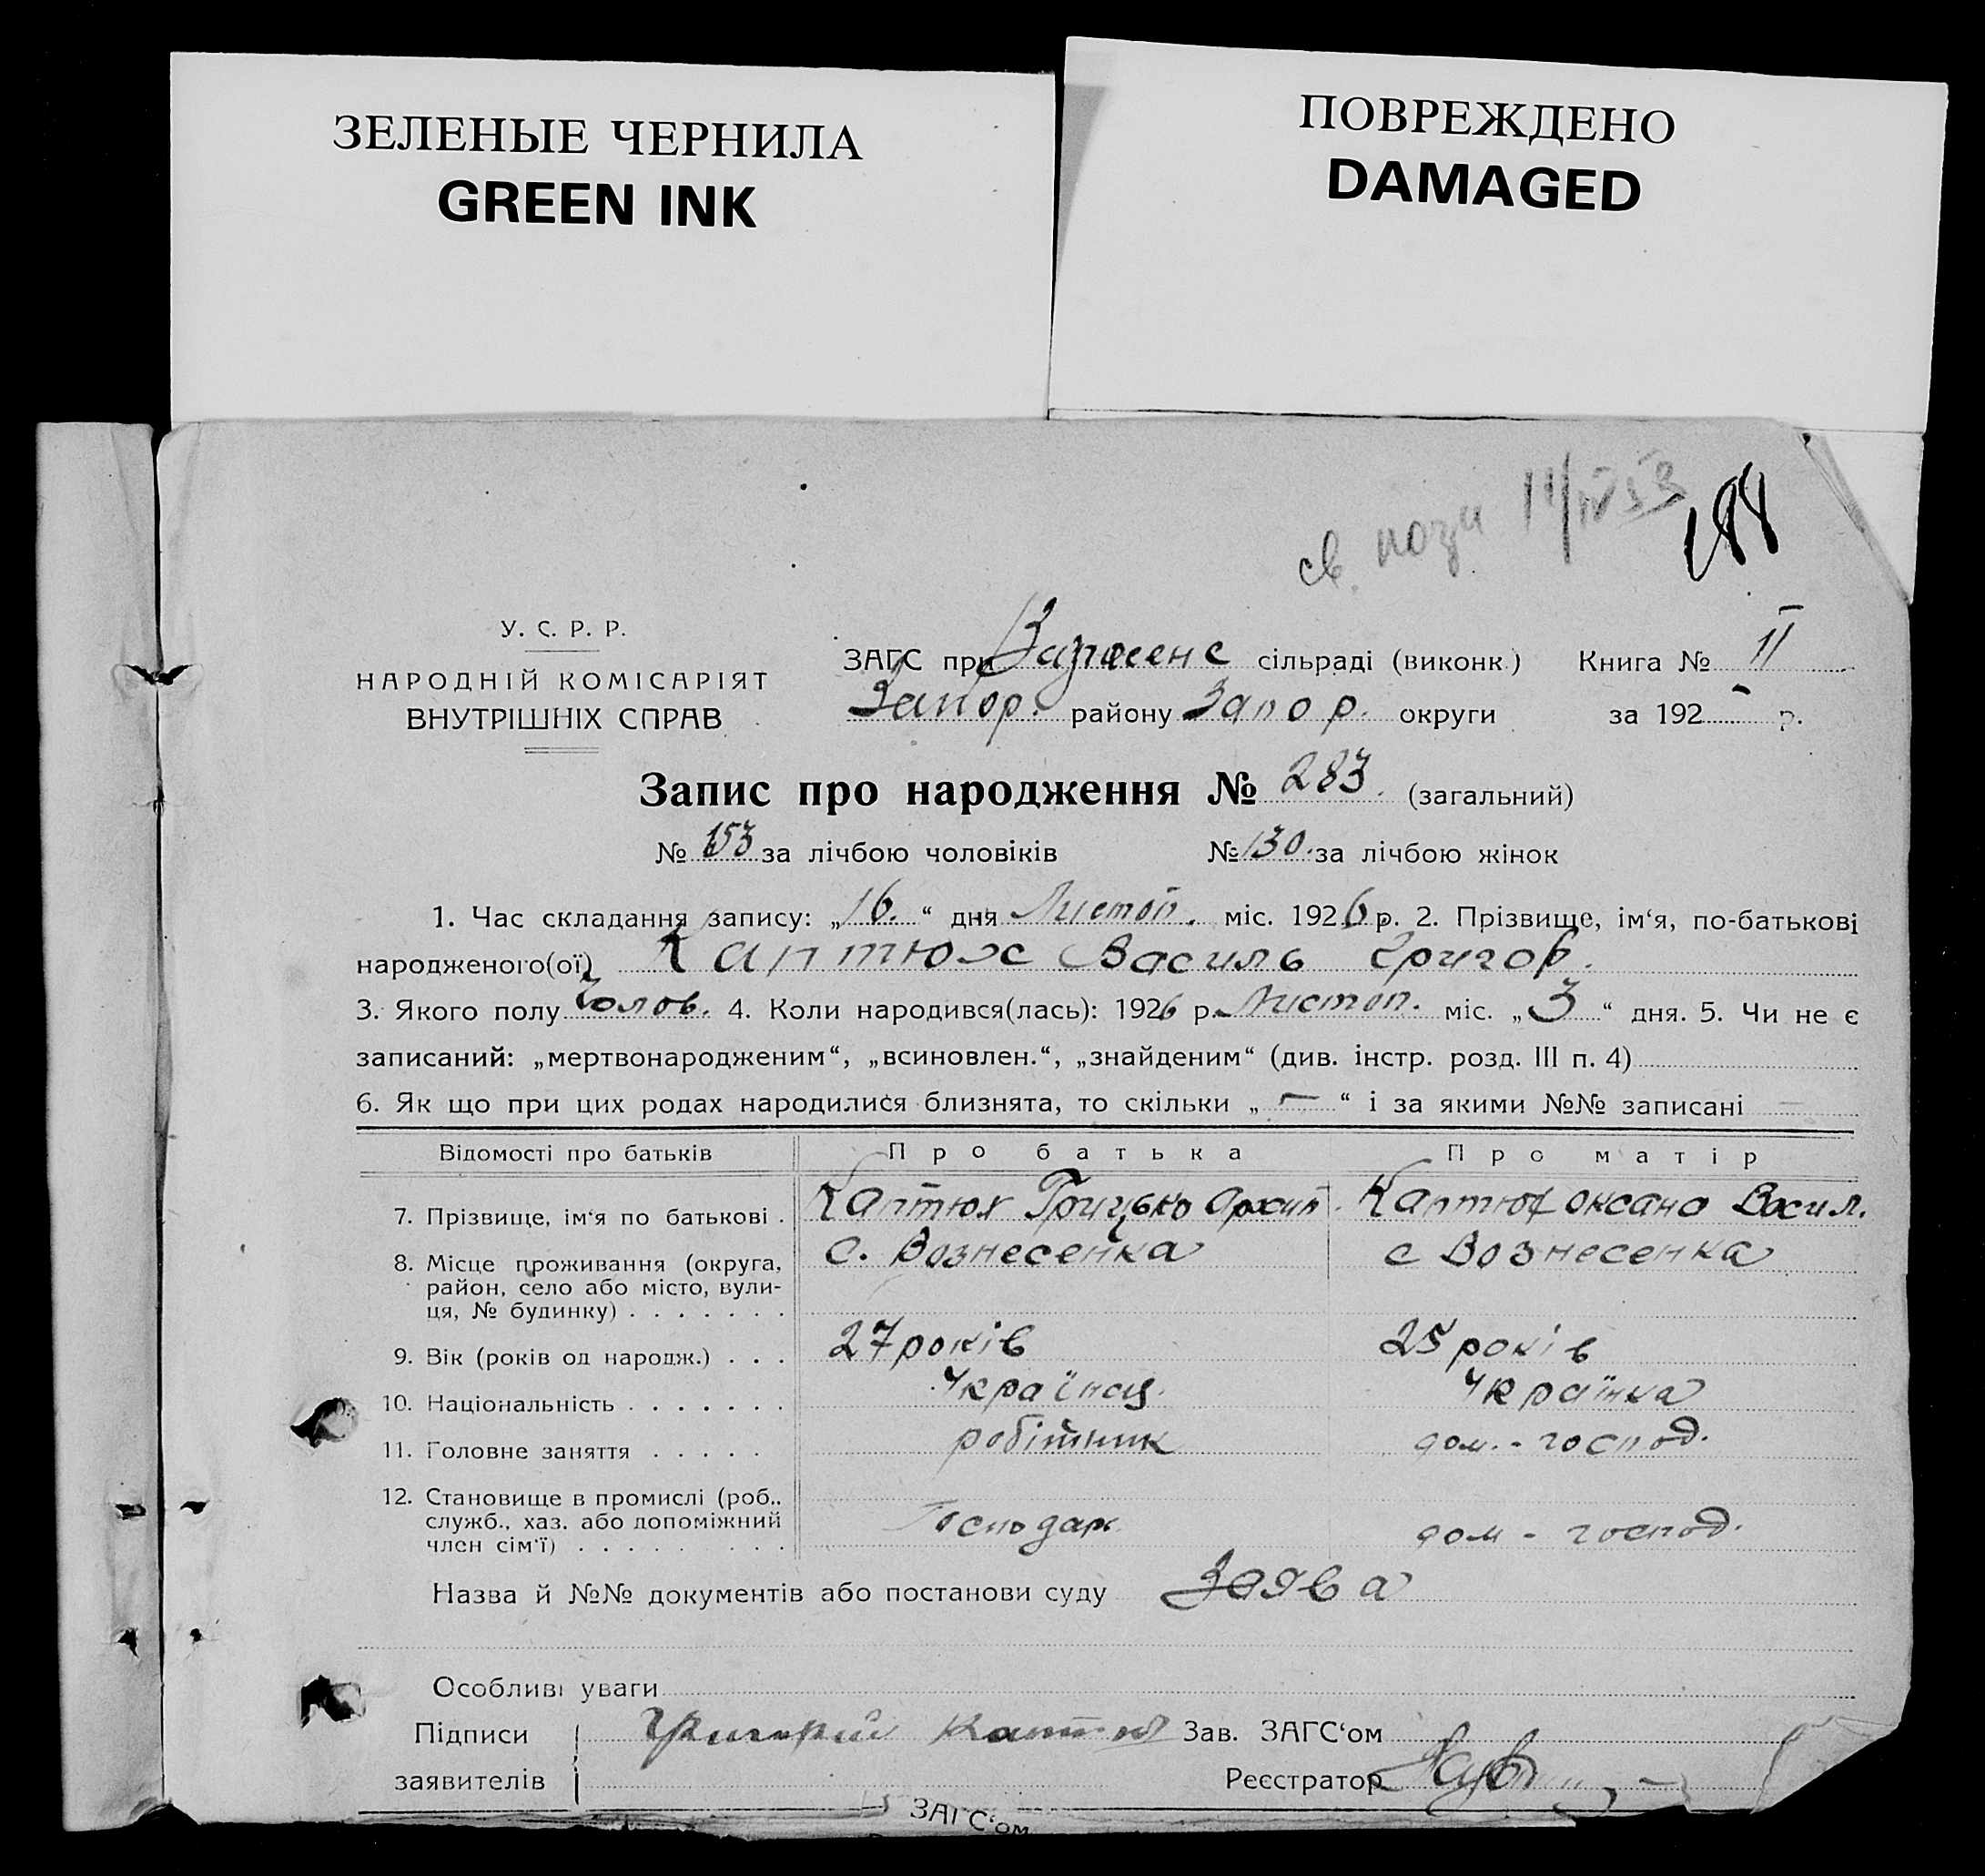 ЗЕЛЕНЫЕ ЧЕРНИЛА
GREEN INK
ПОВРЕЖДЕНО
DAMAGED
св.
188
У. С. Р. Р.
НАРОДНІЙ КОМІСАРІЯТ
ВНУТРІШНІХ СПРАВ
ЗАГС при сільраді (виконк.) Книга № II
Запор. району Запор. округи за 192 р.
Запис про народження № 283. (загальний)
№ 153 за лічбою чоловіків № 130. за лічбою жінок
1. Час складання запису: „16.“ дня Листоп. міс. 1926 р. 2. Прізвище, ім‘я, по-батькові
народженого(ої) Каптюх Василь Григор.
3. Якого полу Чолов. 4. Коли народився(лась): 1926 р. Листоп. міс. „3“ дня. 5. Чи не є
записаний: „мертвонародженим“, „всиновлен.“, „знайденим“ (див. інстр. розд. III п. 4)
6. Як що при цих родах народилися близнята, то скільки „—“ і за якими №№ записані —
Відомості про батьків Про батька Про матір
7. Прізвище, ім‘я по батькові . Каптюх Грицько Архип. Каптюх Оксана Васил.
8. Місце проживання (округа, с. Вознесенка с Вознесенка
район, село або місто, вули-
ця, № будинку) . . . . . . .
9. Вік (років од народж.) . . . 27 років 25 років
10. Національність . . . . . . . Українец. Українка
11. Головне заняття . . . . . робітник дом. - господ.
12. Становище в промислі (роб.,
служб., хаз. або допоміжний Господарь дом - господ.
член сім‘ї) . . . . . . . . .
Назва й №№ документів або постанови суду Заява
Особливі уваги
Підписи Григорий Каптюх Зав. ЗАГС‘ом
заявителів Реєстратор
ЗАГС‘ом